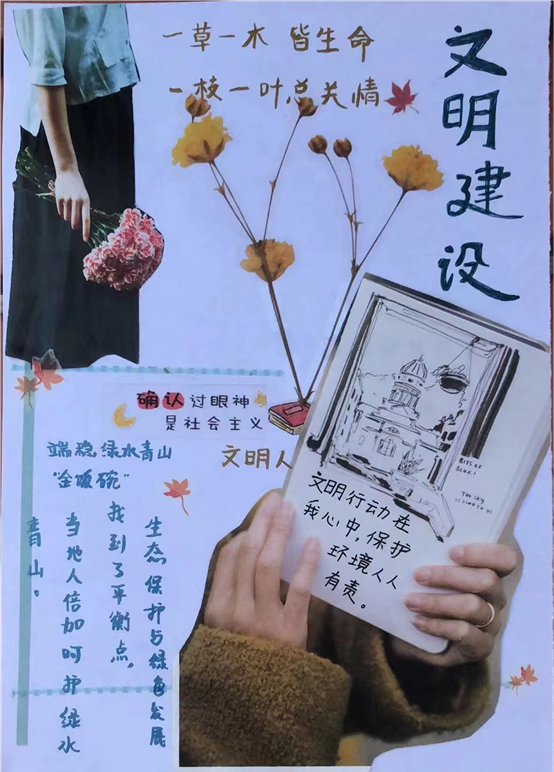 一草一木 皆生命
一枝一叶总关情
文明建设
确认过眼神
是社会主义
文明人
端稳绿水青山
“金饭碗”
生态保护与绿色发展
找到了平衡点。
当地人倍加呵护绿水
青山。
文明行动在
我心中,保护
环境人人
有责。